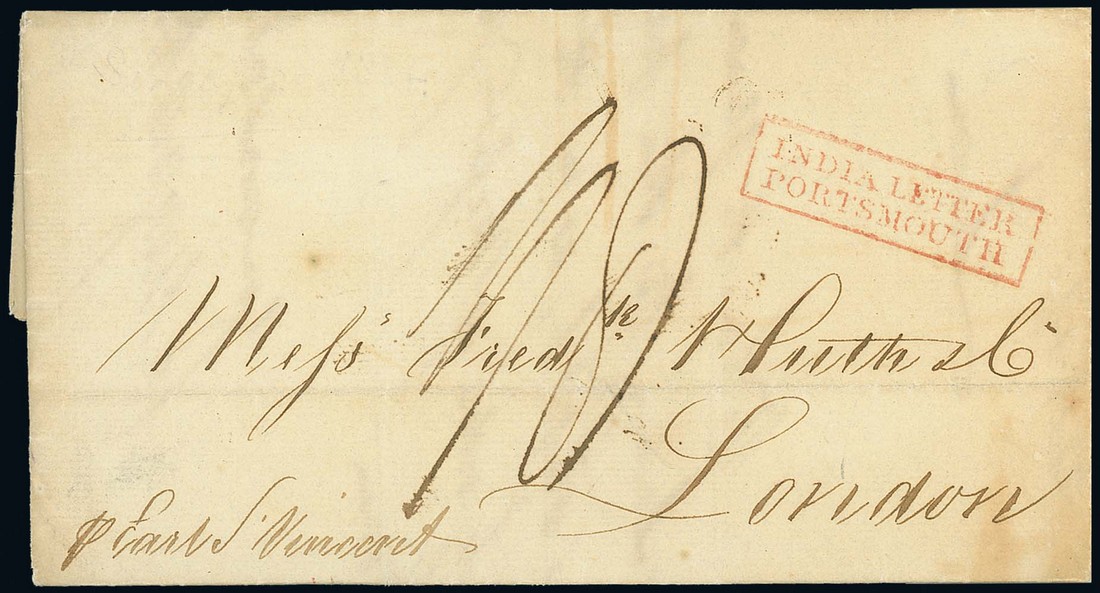 INDIA LETTER
PORTSMOUTH
10
Messrs Fredk Huth & Co
London
p Earl St Vincent